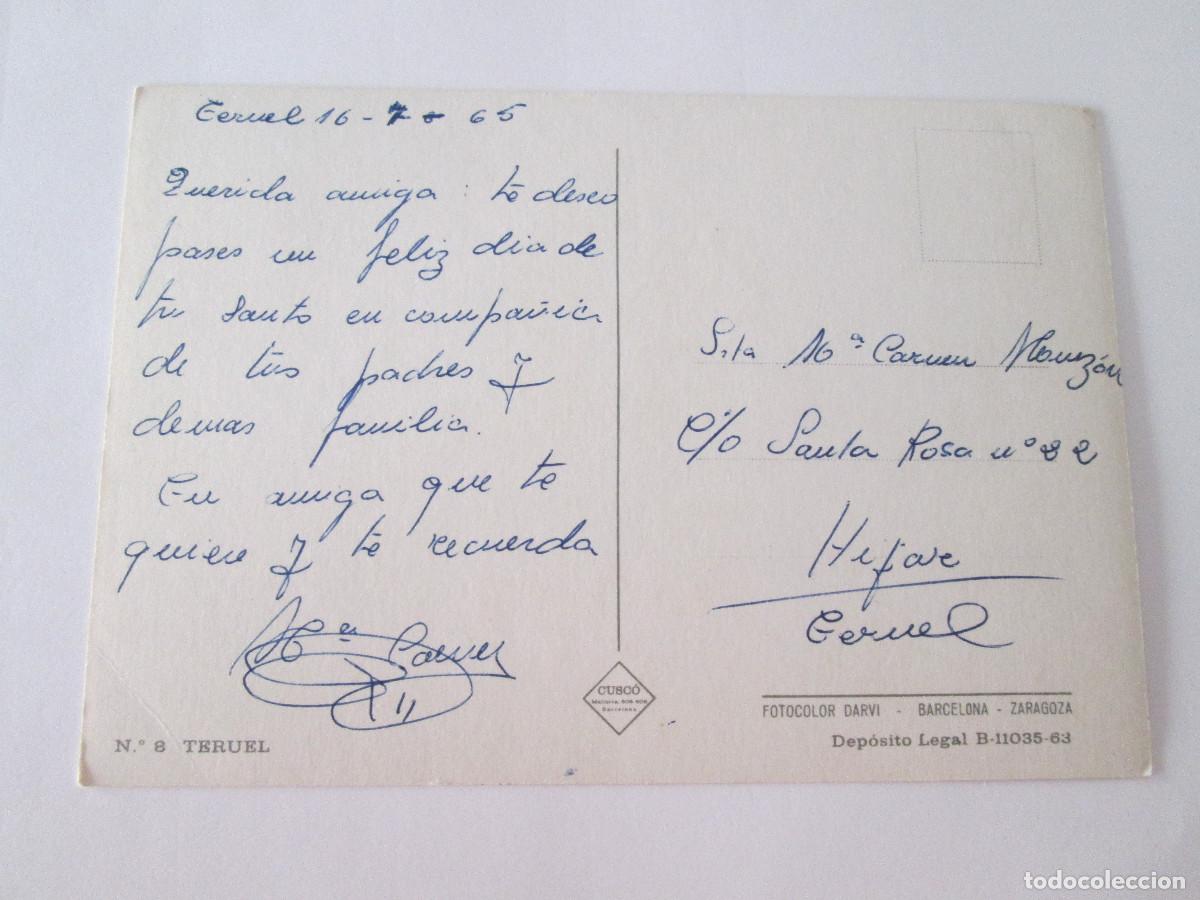 Teruel 16 - 7 - 65
Querida amiga : te deseo
pases un feliz dia de
tu Santo en compañia
de tus padres y
demas familia.
Tu amiga que te
quiere y te recuerda
Mª Carmen
Srta Mª Carmen Monzón
C/o Santa Rosa nº 22
Hijar
Teruel
CUSCÓ
Mallorca, 606 608
Barcelona
FOTOCOLOR DARVI - BARCELONA - ZARAGOZA
Depósito Legal B-11035-63
N.º 8 TERUEL
todocoleccion